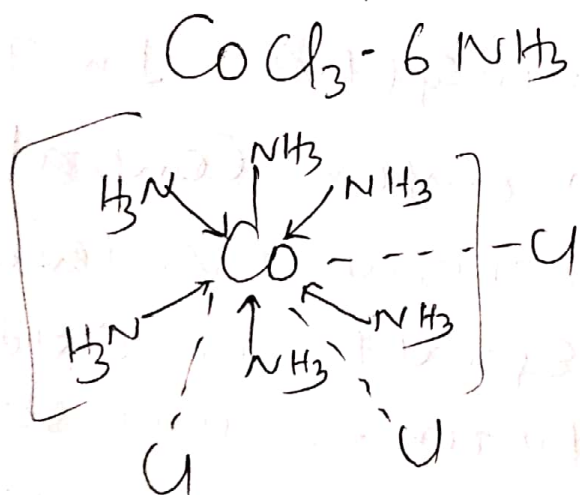 CoCl₃· 6 NH₃
NH₃
H₃N NH₃
Co Cl
H₃N NH₃
NH₃
Cl Cl